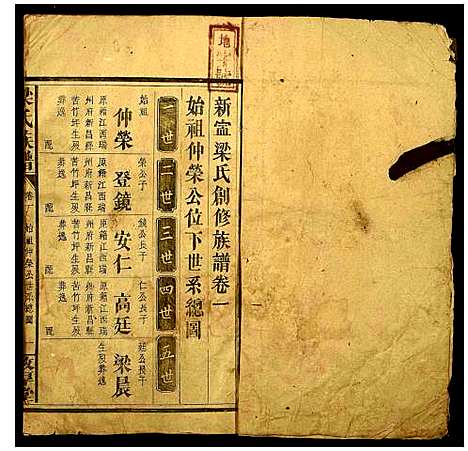 地
新甯梁氏創修族譜卷一
始祖仲榮公位下世系總圖
一世
二世
三世
四世
五世
始祖
仲榮
原籍江西瑞
州府新昌縣
苦竹坪生殁
葬逸
配
榮公子
登鏡
原籍江西瑞
州府新昌縣
苦竹坪生殁
葬逸
配
鏡公長子
安仁
原籍江西瑞
州府新昌縣
苦竹坪生殁
葬逸
配
仁公長子
高廷
原籍江西瑞
州府新昌縣
苦竹坪生殁
葬逸
配
廷公長子
梁晨
生殁葬逸
梁氏族譜
始祖仲榮公世系總圖